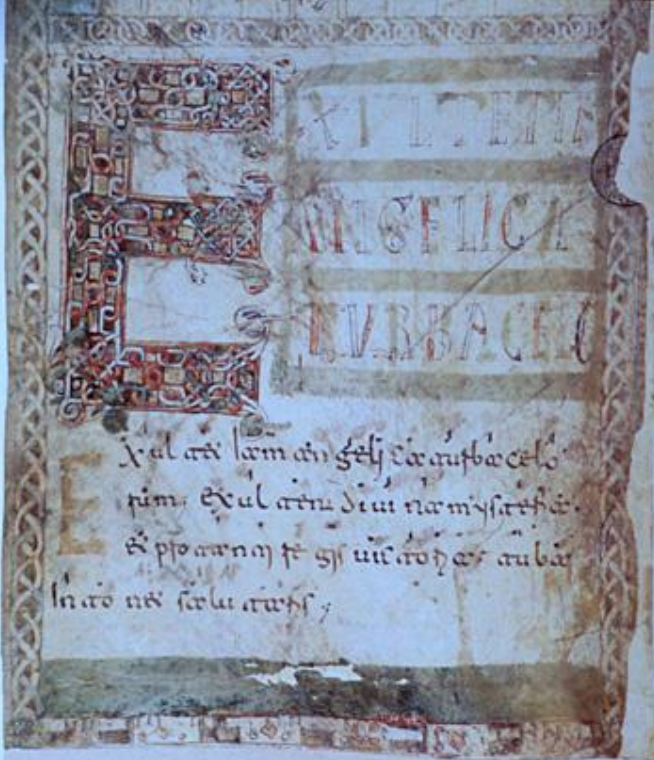 EXULTET IA
ANGELICA
TURBA CELO
Exultet Iam angelica turba celo
rum. exultent divina mysteria.
et pro tanti regis victoria. tuba
Intonet salutaris;